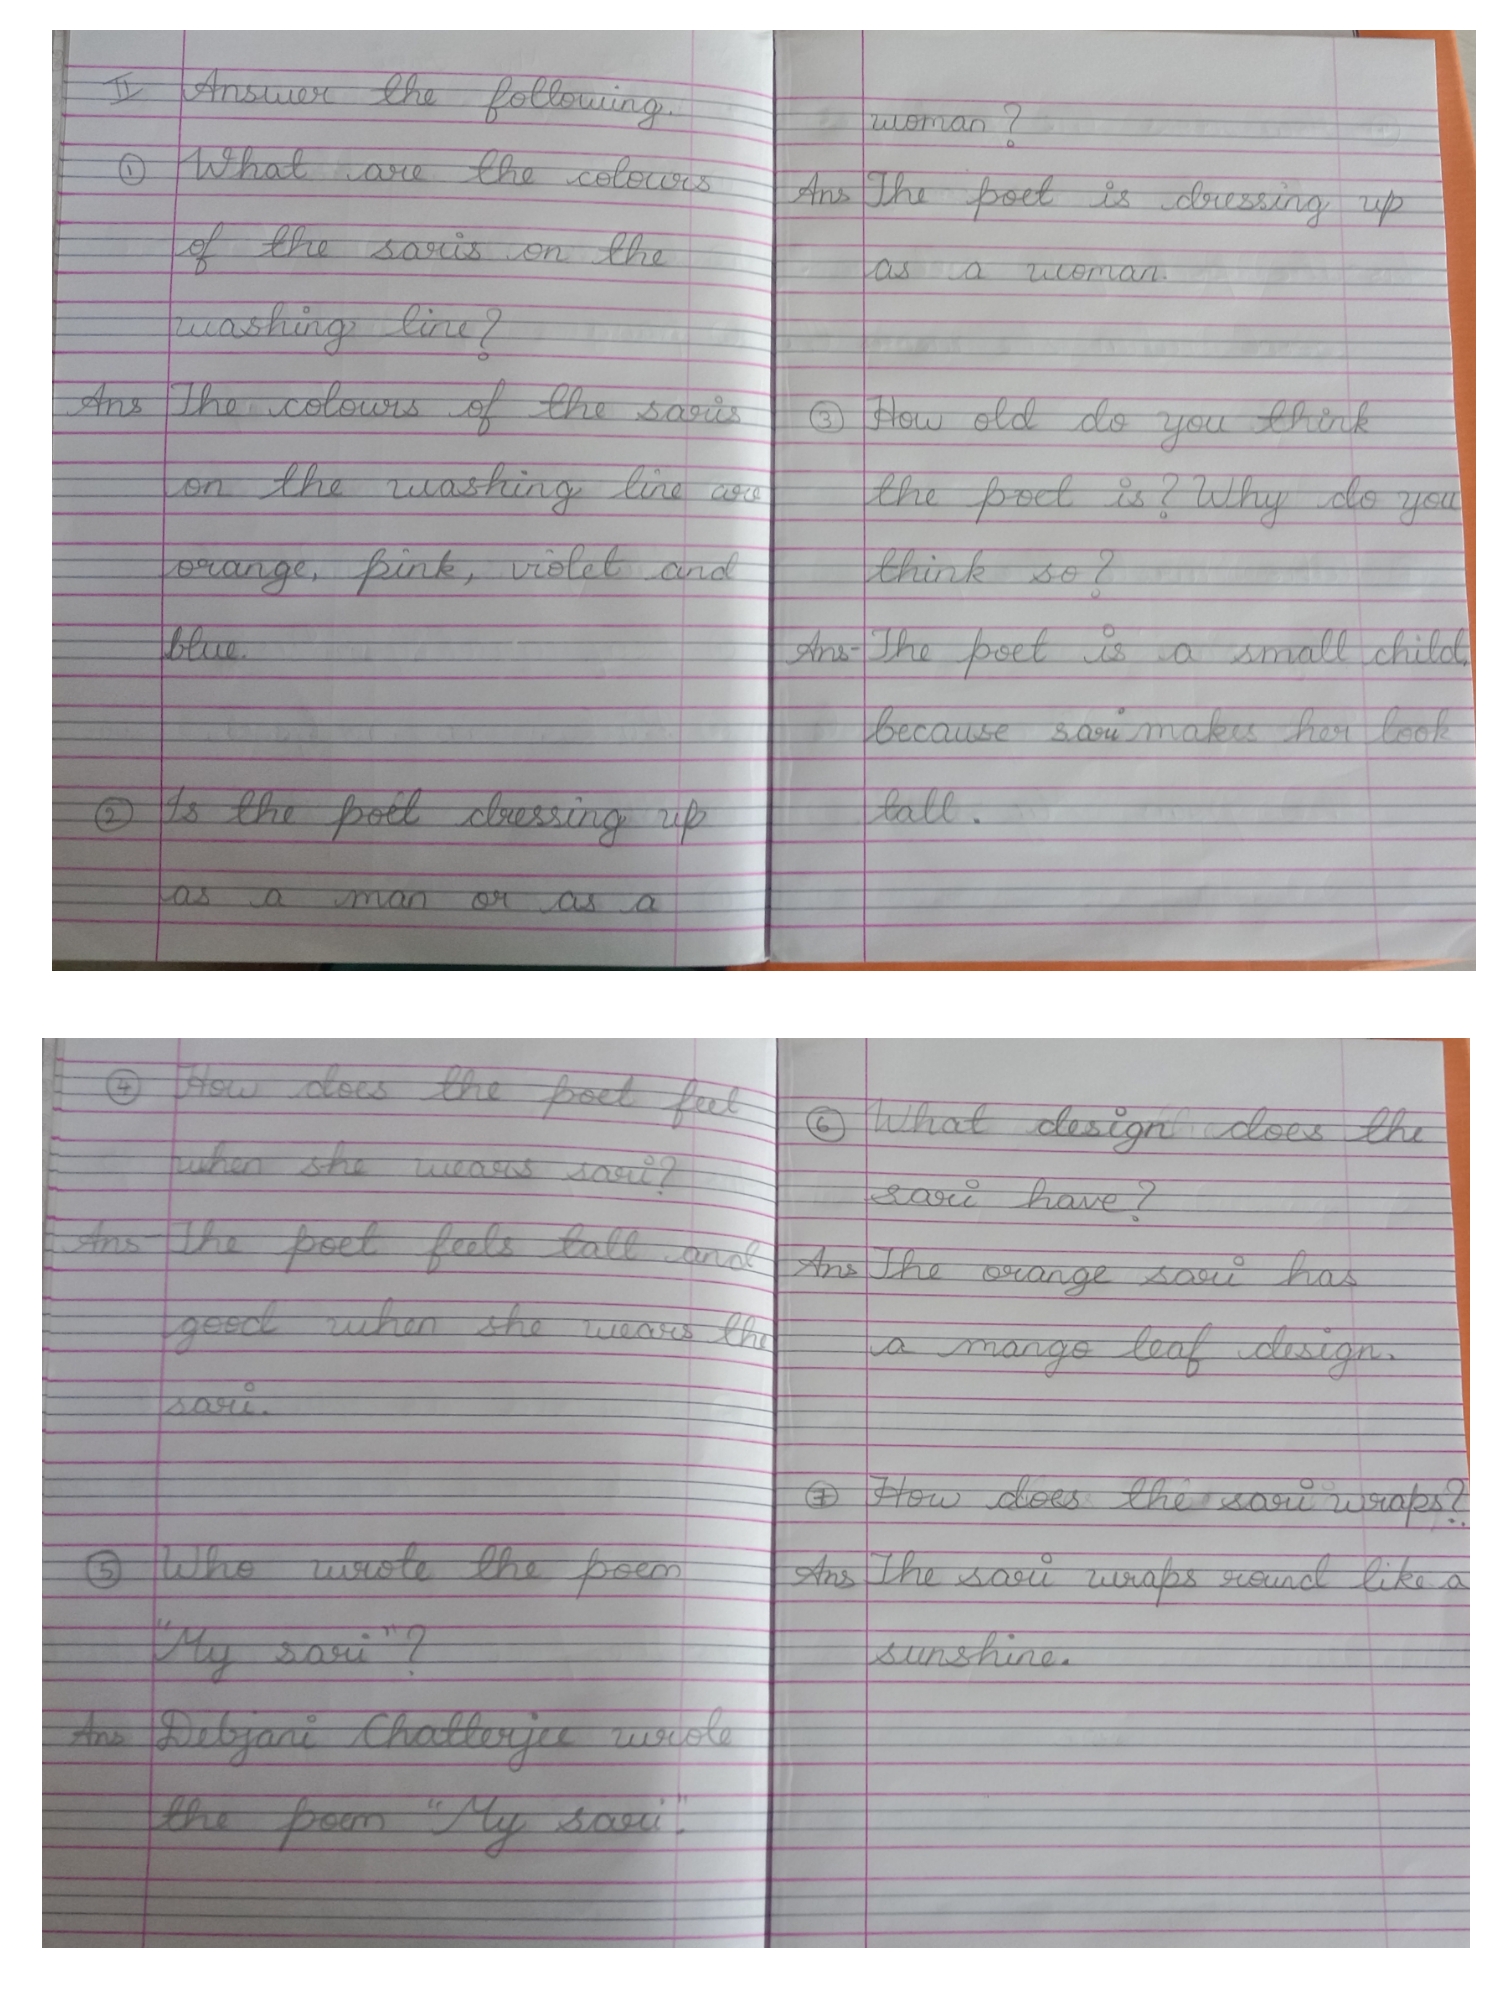 II Answer the following.
① What are the colours
of the saris on the
washing line?
Ans The colours of the saris
on the washing line are
orange, pink, violet and
blue.
② Is the poet dressing up
as a man or as a
woman?
Ans The poet is dressing up
as a woman.
③ How old do you think
the poet is? Why do you
think so?
Ans- The poet is a small child,
because sari makes her look
tall.
④ How does the poet feel
when she wears sari?
Ans- The poet feels tall and
good when she wears the
sari.
⑤ Who wrote the poem
"My sari"?
Ans Debjani Chatterjee wrote
the poem "My sari".
⑥ What design does the
sari have?
Ans The orange sari has
a mango leaf design.
⑦ How does the sari wraps?
Ans The sari wraps round like a
sunshine.